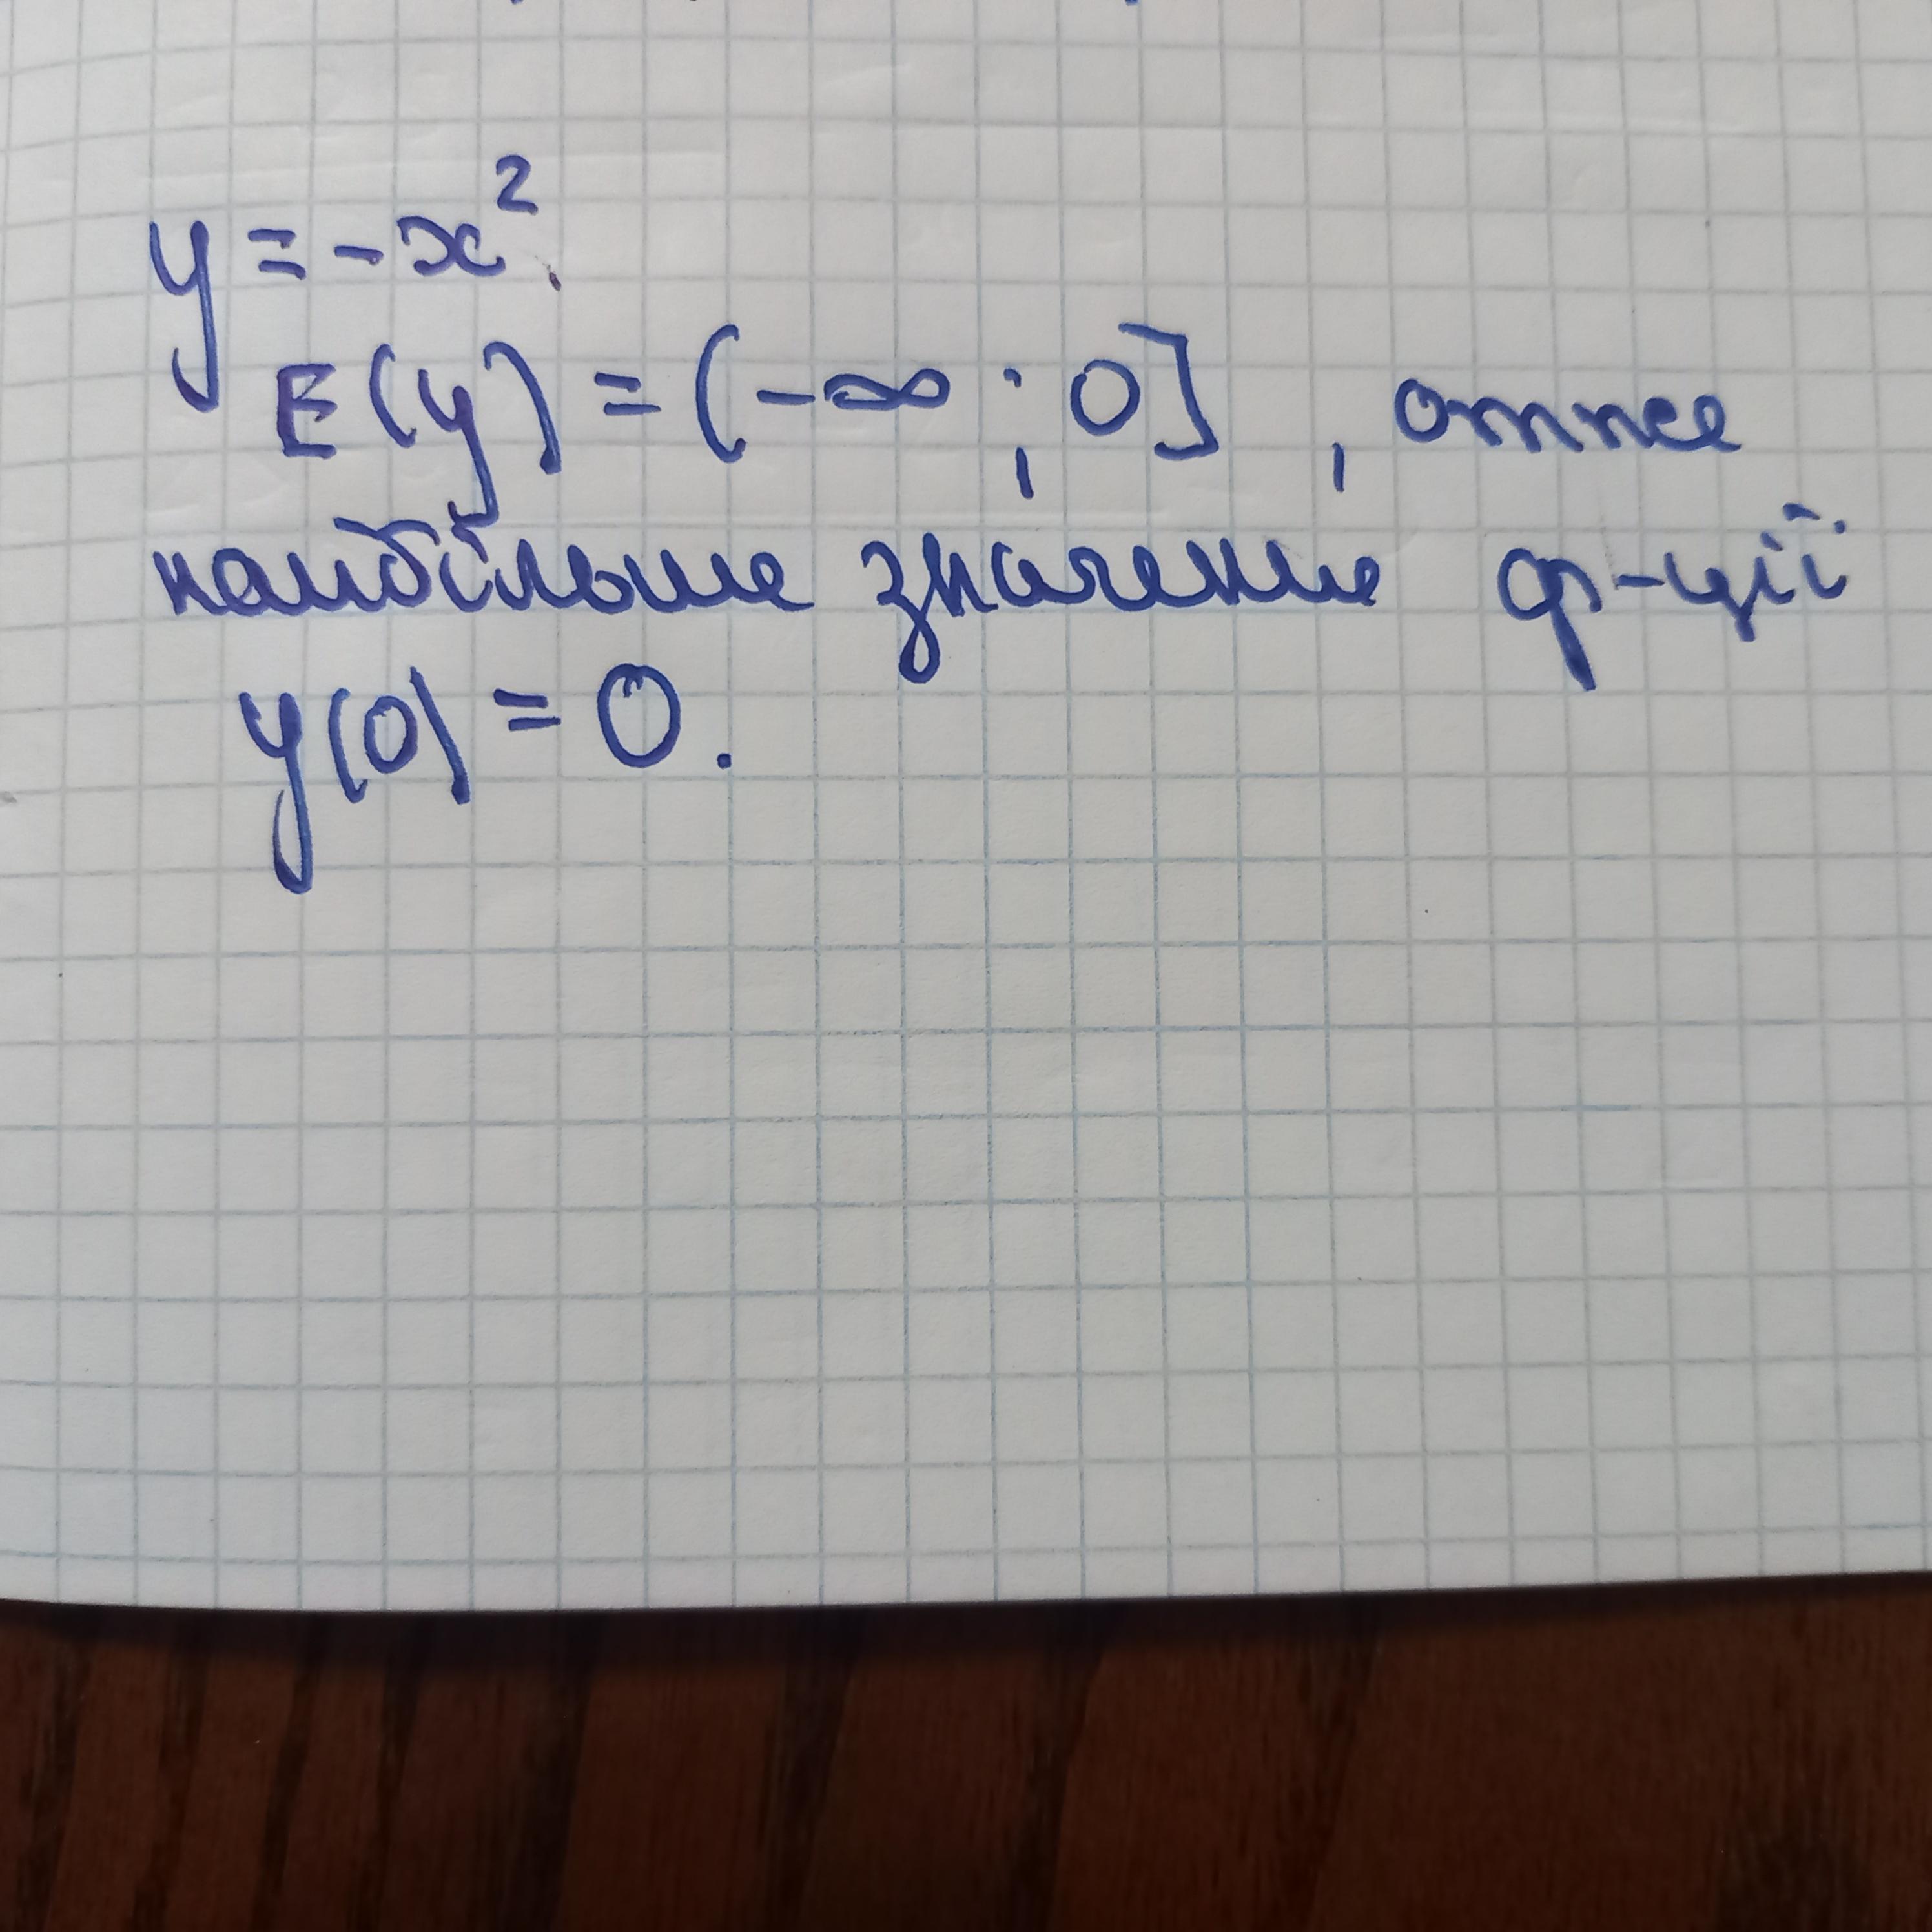 y = -x².
E(y) = (-∞ ; 0] , отже
найбільше значення ф-ції
y(0) = 0.